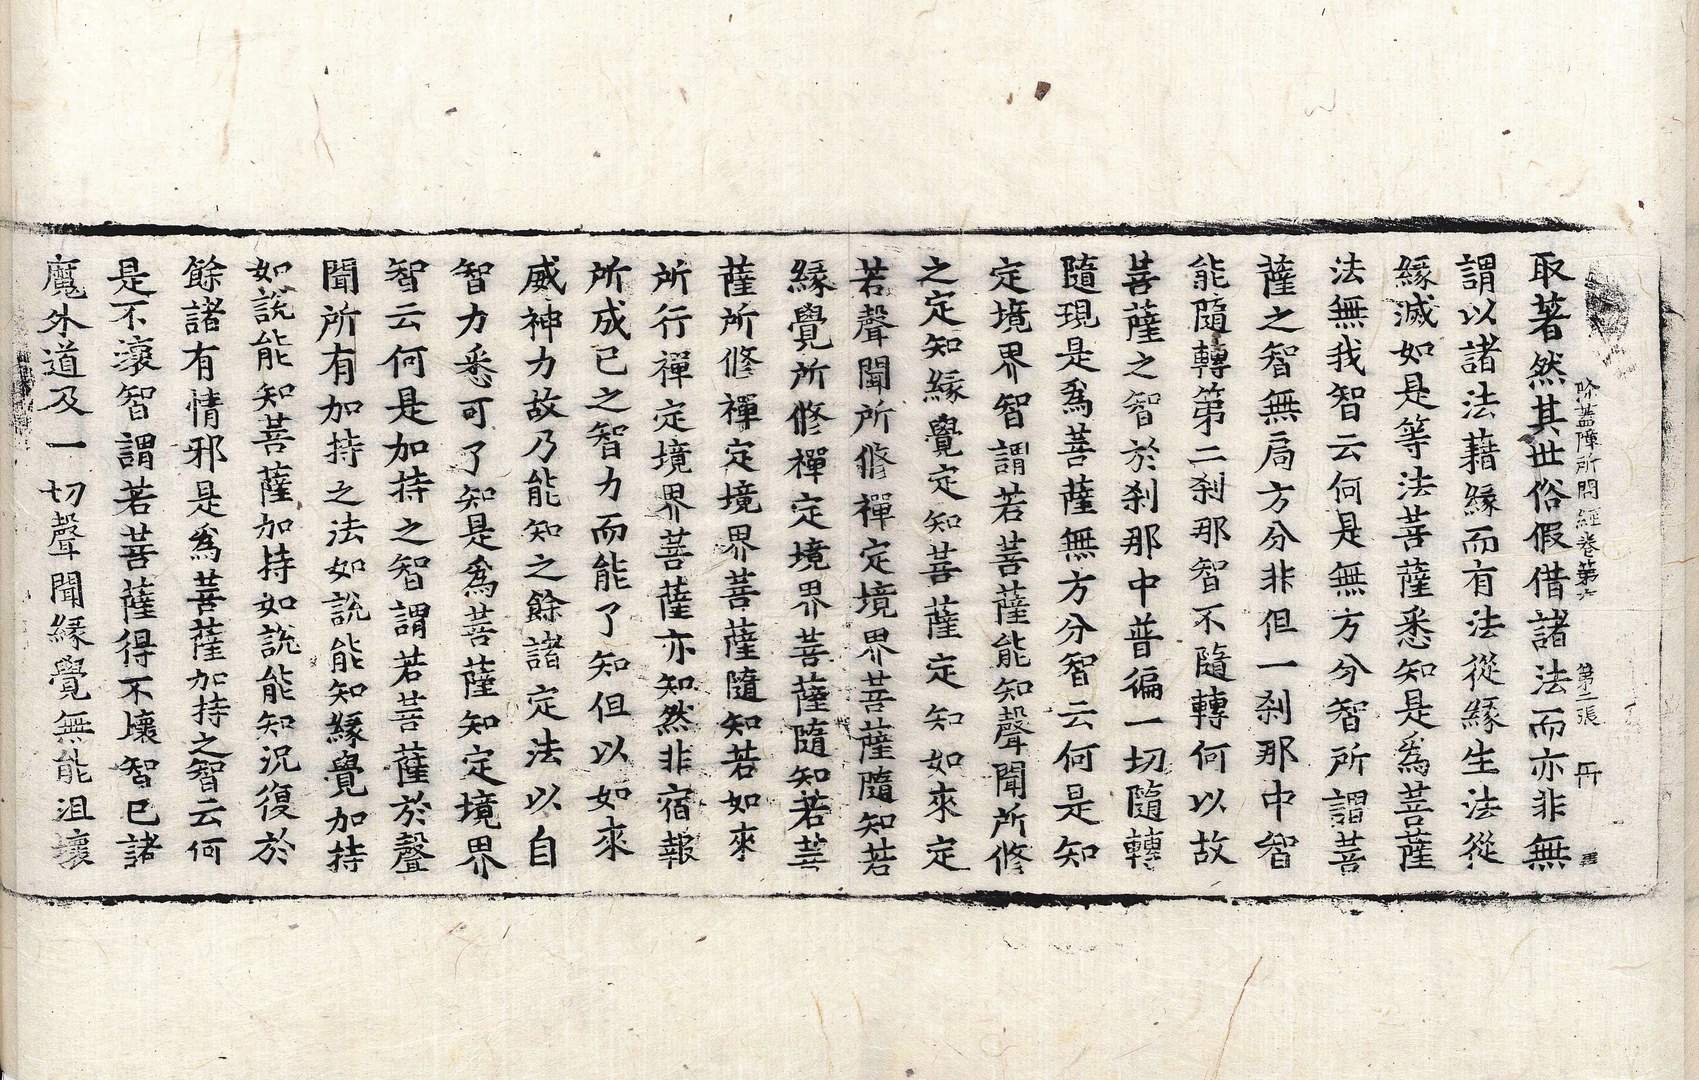 除蓋障所問經卷第六 第二張 冊
取著然其世俗假借諸法而亦非無
謂以諸法藉緣而有法從緣生法從
緣滅如是等法菩薩悉知是爲菩薩
法無我智云何是無方分智所謂菩
薩之智無局方分非但一刹那中智
能隨轉第二刹那智不隨轉何以故
菩薩之智於刹那中普徧一切隨轉
隨現是爲菩薩無方分智云何是知
定境界智謂若菩薩能知聲聞所修
之定知緣覺定知菩薩定知如來定
若聲聞所修禪定境界菩薩隨知若
緣覺所修禪定境界菩薩隨知若菩
薩所修禪定境界菩薩隨知若如來
所行禪定境界菩薩亦知然非宿報
所成已之智力而能了知但以如來
威神力故乃能知之餘諸定法以自
智力悉可了知是爲菩薩知定境界
智云何是加持之智謂若菩薩於聲
聞所有加持之法如說能知緣覺加持
如說能知菩薩加持如說能知況復於
餘諸有情邪是爲菩薩加持之智云何
是不瓌智謂若菩薩得不壞智已諸
魔外道及一切聲聞緣覺無能沮壞